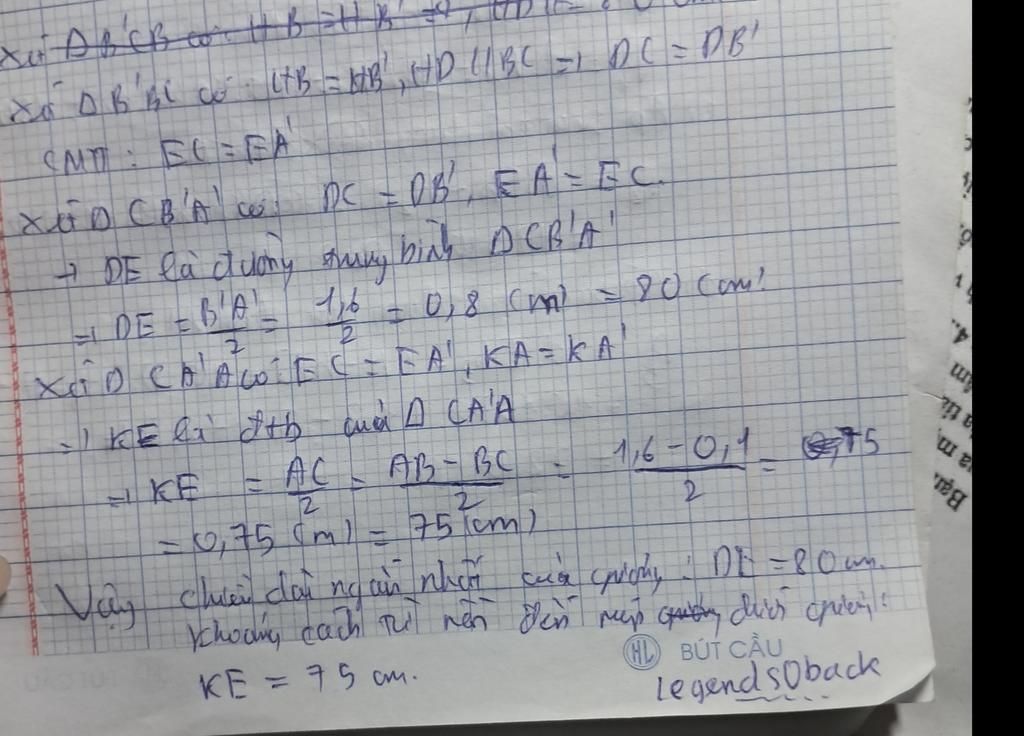 Xét Δ B'CB có HB = HB'
Xét Δ B'BC có HB = HB', HD // BC ⇒ DC = DB'
CMTT: EC = EA'
Xét Δ CB'A' có DC = DB', EA' = EC.
→ DE là đường trung bình Δ CB'A'
⇒ DE = B'A'/2 = 1,6/2 = 0,8 (m) = 80 (cm)
Xét Δ CA'A có: EC = EA', KA = KA'
⇒ KE là đtb của Δ CA'A
⇒ KE = AC/2 = AB - BC/2 = 1,6 - 0,1/2 = 0,75
= 0,75 (m) = 75 (cm)
Vậy chiều dài ngắn nhất của gương: DE = 80 cm.
khoảng cách từ nền đến mép gương dưới gương:
KE = 75 cm.
HL BÚT CẦU
legends0back